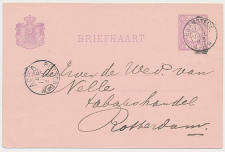 BRIEFKAART
de Erven de Wed. van
Nelle
tabakshandel
Rotterdam.